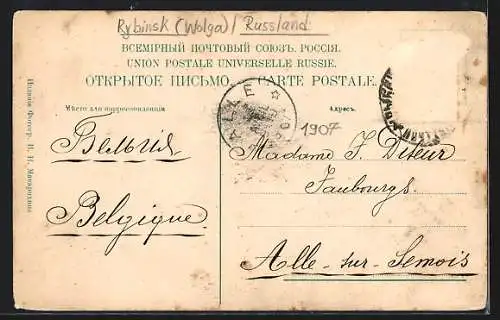 Rybinsk (Wolga) / Russland
ВСЕМІРНЫЙ ПОЧТОВЫЙ СОЮЗЪ. РОССІЯ.
UNION POSTALE UNIVERSELLE RUSSIE.
ОТКРЫТОЕ ПИСЬМО. — CARTE POSTALE.
Мѣсто для корреспонденціи
Адресъ.
ALLE
1907
Бельгія
Belgique
Madame F.
Faubourgs.
Alle-sur-Semois
Изданіе Фотогр.